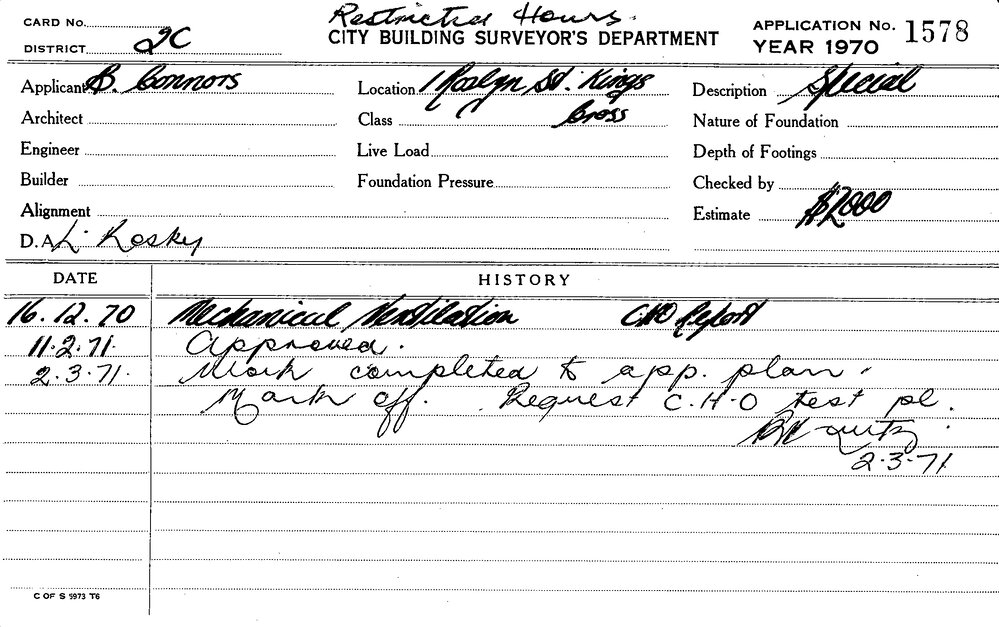 Restricted Hours.
CARD No.
CITY BUILDING SURVEYOR'S DEPARTMENT
APPLICATION No. 1578
DISTRICT 2C
YEAR 1970
Applicant B. Connors
Location 1 Roslyn St. Kings
Cross
Description Special
Architect
Class
Nature of Foundation
Engineer
Live Load
Depth of Footings
Builder
Foundation Pressure
Checked by
Alignment
Estimate $2000
D.A. L. Kosky
DATE HISTORY
16.12.70 Mechanical Ventilation CHO Report
11.2.71. Approved.
2.3.71. Work completed to app. plan.
Mark off. Request C.H.O test pl.
2.3.71
C OF S 5973 T6